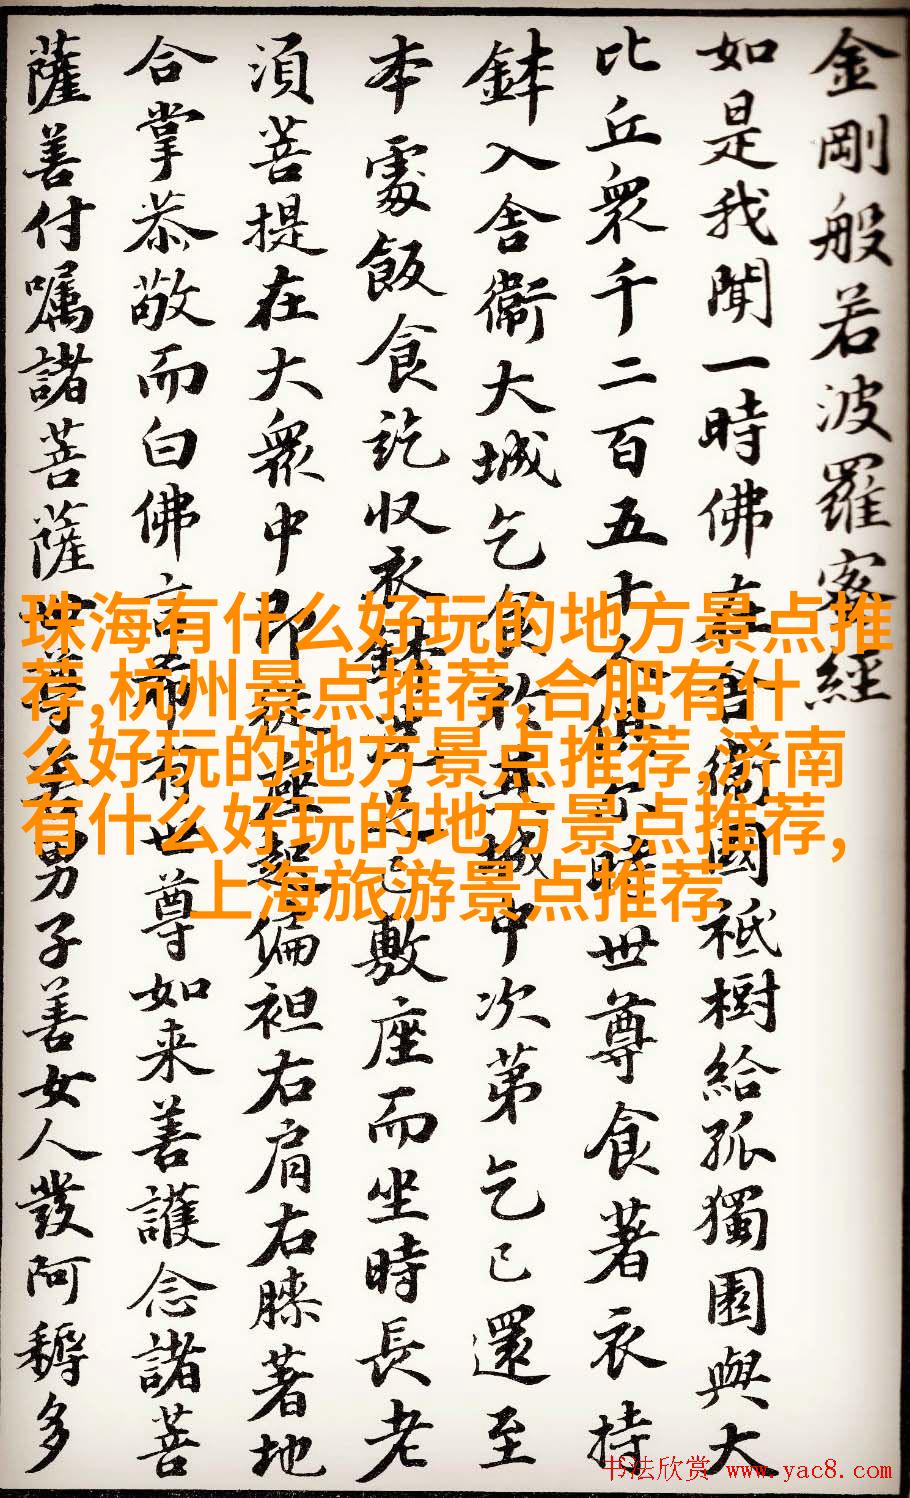 金剛般若波羅蜜經
如是我聞一時佛在舍衛國祇樹給孤獨園與大
比丘眾千二百五十人俱尒時世尊食著衣持
鉢入舍衛大城乞食於其城中次第乞已還至
本處飯食訖収衣鉢洗足已敷座而坐時長老
須菩提在大眾中即從座起偏袒右肩右膝著地
合掌恭敬而白佛言希有世尊如来善護念諸菩
薩善付嘱諸菩薩世尊善男子善女人發阿耨多
珠海有什么好玩的地方景点推
荐,杭州景点推荐,合肥有什
么好玩的地方景点推荐,济南
有什么好玩的地方景点推荐,
上海旅游景点推荐
书法欣赏 www.yac8.com